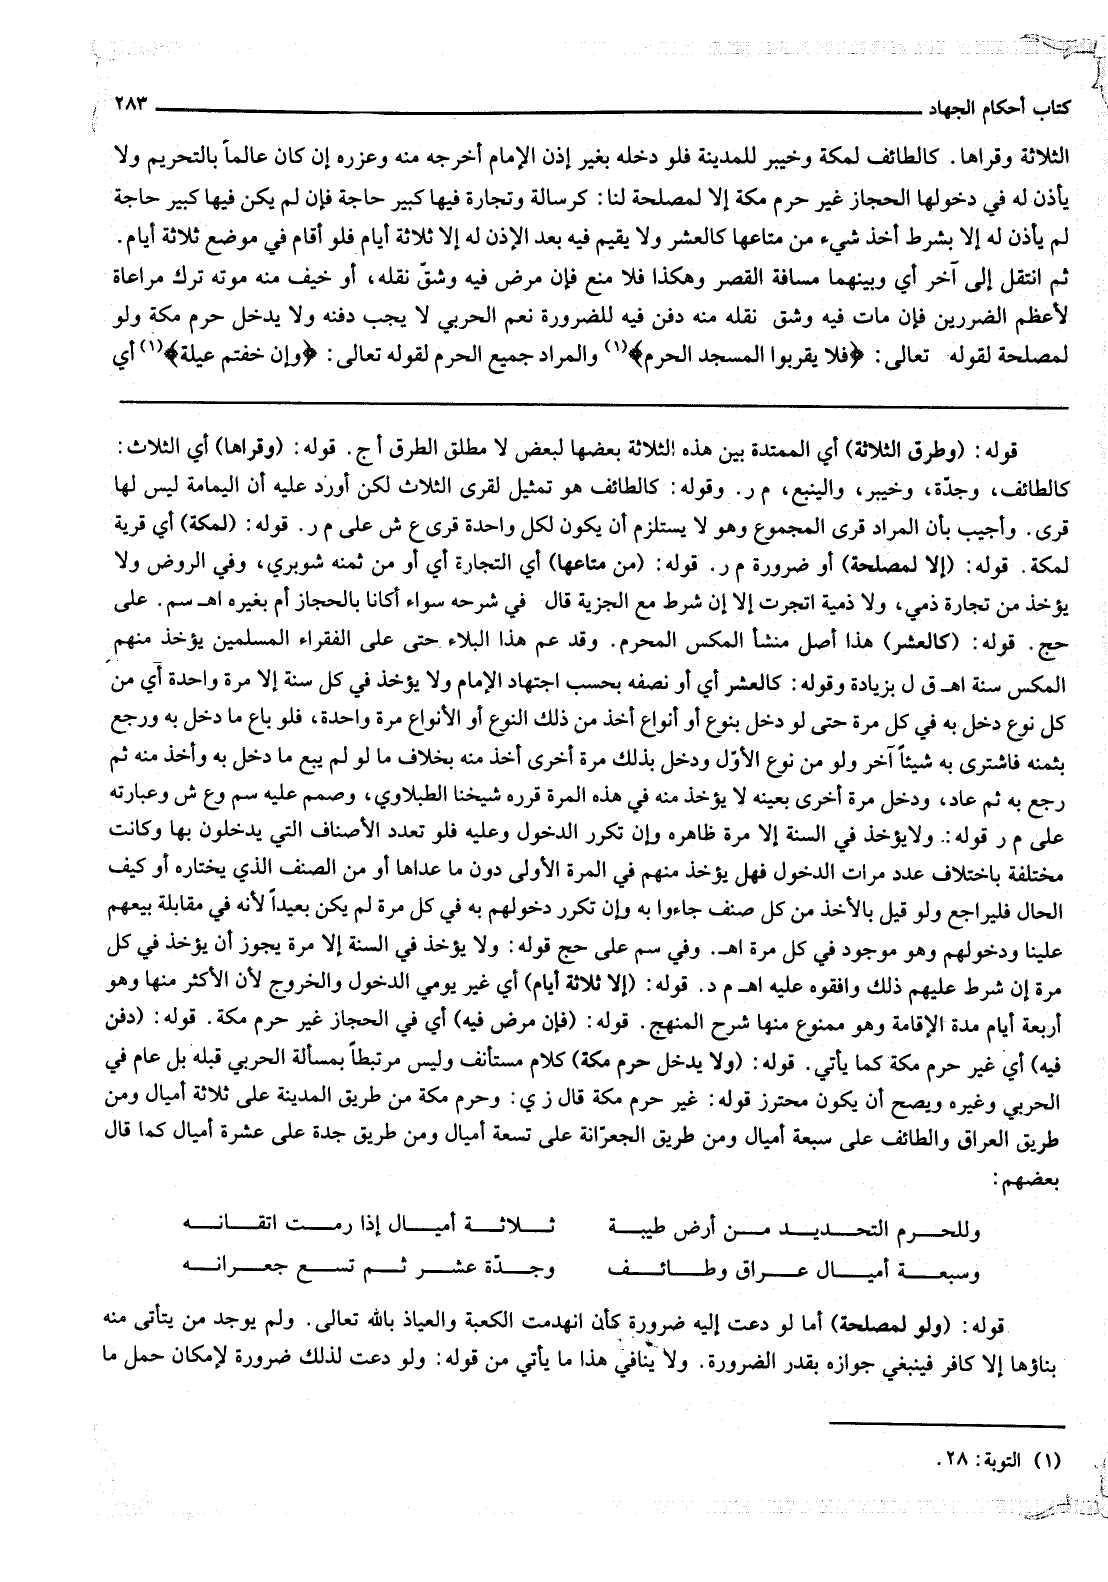 كتاب أحكام الجهاد ٢٨٣
الثلاثة وقراها. كالطائف لمكة وخيبر للمدينة فلو دخله بغير إذن الإمام أخرجه منه وعزره إن كان عالماً بالتحريم ولا
يأذن له في دخولها الحجاز غير حرم مكة إلا لمصلحة لنا: كرسالة وتجارة فيها كبير حاجة فإن لم يكن فيها كبير حاجة
لم يأذن له إلا بشرط أخذ شيء من متاعها كالعشر ولا يقيم فيه بعد الإذن له إلا ثلاثة أيام فلو أقام في موضع ثلاثة أيام.
ثم انتقل إلى آخر أي وبينهما مسافة القصر وهكذا فلا منع فإن مرض فيه وشقّ نقله، أو خيف منه موته ترك مراعاة
لأعظم الضررين فإن مات فيه وشق نقله منه دفن فيه للضرورة نعم الحربي لا يجب دفنه ولا يدخل حرم مكة ولو
لمصلحة لقوله تعالى: ﴿فلا يقربوا المسجد الحرم﴾(١) والمراد جميع الحرم لقوله تعالى: ﴿وإن خفتم عيلة﴾(١) أي
قوله: (وطرق الثلاثة) أي الممتدة بين هذه الثلاثة بعضها لبعض لا مطلق الطرق أ ج. قوله: (وقراها) أي الثلاث:
كالطائف، وجدّة، وخيبر، والينبع، م ر. وقوله: كالطائف هو تمثيل لقرى الثلاث لكن أورد عليه أن اليمامة ليس لها
قرى. وأجيب بأن المراد قرى المجموع وهو لا يستلزم أن يكون لكل واحدة قرى ع ش على م ر. قوله: (لمكة) أي قرية
لمكة. قوله: (إلا لمصلحة) أو ضرورة م ر. قوله: (من متاعها) أي التجارة أي أو من ثمنه شوبري، وفي الروض ولا
يؤخذ من تجارة ذمي، ولا ذمية اتجرت إلا إن شرط مع الجزية قال في شرحه سواء أكانا بالحجاز أم بغيره اهـ سم. على
حج. قوله: (كالعشر) هذا أصل منشأ المكس المحرم. وقد عم هذا البلاء حتى على الفقراء المسلمين يؤخذ منهم
المكس سنة اهـ ق ل بزيادة وقوله: كالعشر أي أو نصفه بحسب اجتهاد الإمام ولا يؤخذ في كل سنة إلا مرة واحدة أي من
كل نوع دخل به في كل مرة حتى لو دخل بنوع أو أنواع أخذ من ذلك النوع أو الأنواع مرة واحدة، فلو باع ما دخل به ورجع
بثمنه فاشترى به شيئاً آخر ولو من نوع الأوّل ودخل بذلك مرة أخرى أخذ منه بخلاف ما لو لم يبع ما دخل به وأخذ منه ثم
رجع به ثم عاد، ودخل مرة أخرى بعينه لا يؤخذ منه في هذه المرة قرره شيخنا الطبلاوي، وصمم عليه سم وع ش وعبارته
على م ر قوله: ولايؤخذ في السنة إلا مرة ظاهره وإن تكرر الدخول وعليه فلو تعدد الأصناف التي يدخلون بها وكانت
مختلفة باختلاف عدد مرات الدخول فهل يؤخذ منهم في المرة الأولى دون ما عداها أو من الصنف الذي يختاره أو كيف
الحال فليراجع ولو قيل بالأخذ من كل صنف جاءوا به وإن تكرر دخولهم به في كل مرة لم يكن بعيداً لأنه في مقابلة بيعهم
علينا ودخولهم وهو موجود في كل مرة اهـ. وفي سم على حج قوله: ولا يؤخذ في السنة إلا مرة يجوز أن يؤخذ في كل
مرة إن شرط عليهم ذلك وافقوه عليه اهـ م د. قوله: (إلا ثلاثة أيام) أي غير يومي الدخول والخروج لأن الأكثر منها وهو
أربعة أيام مدة الإقامة وهو ممنوع منها شرح المنهج. قوله: (فإن مرض فيه) أي في الحجاز غير حرم مكة. قوله: (دفن
فيه) أي غير حرم مكة كما يأتي. قوله: (ولا يدخل حرم مكة) كلام مستأنف وليس مرتبطاً بمسألة الحربي قبله بل عام في
الحربي وغيره ويصح أن يكون محترز قوله: غير حرم مكة قال ز ي: وحرم مكة من طريق المدينة على ثلاثة أميال ومن
طريق العراق والطائف على سبعة أميال ومن طريق الجعرّانة على تسعة أميال ومن طريق جدة على عشرة أميال كما قال
بعضهم:
وللحرم التحديد من أرض طيبة ثلاثة أميال إذا رمت اتقانه
وسبعة أميال عراق وطائف وجدّة عشر ثم تسع جعرانه
قوله: (ولو لمصلحة) أما لو دعت إليه ضرورة كأن انهدمت الكعبة والعياذ بالله تعالى. ولم يوجد من يتأتى منه
بناؤها إلا كافر فينبغي جوازه بقدر الضرورة. ولا ينافي هذا ما يأتي من قوله: ولو دعت لذلك ضرورة لإمكان حمل ما
(١) التوبة: ٢٨.